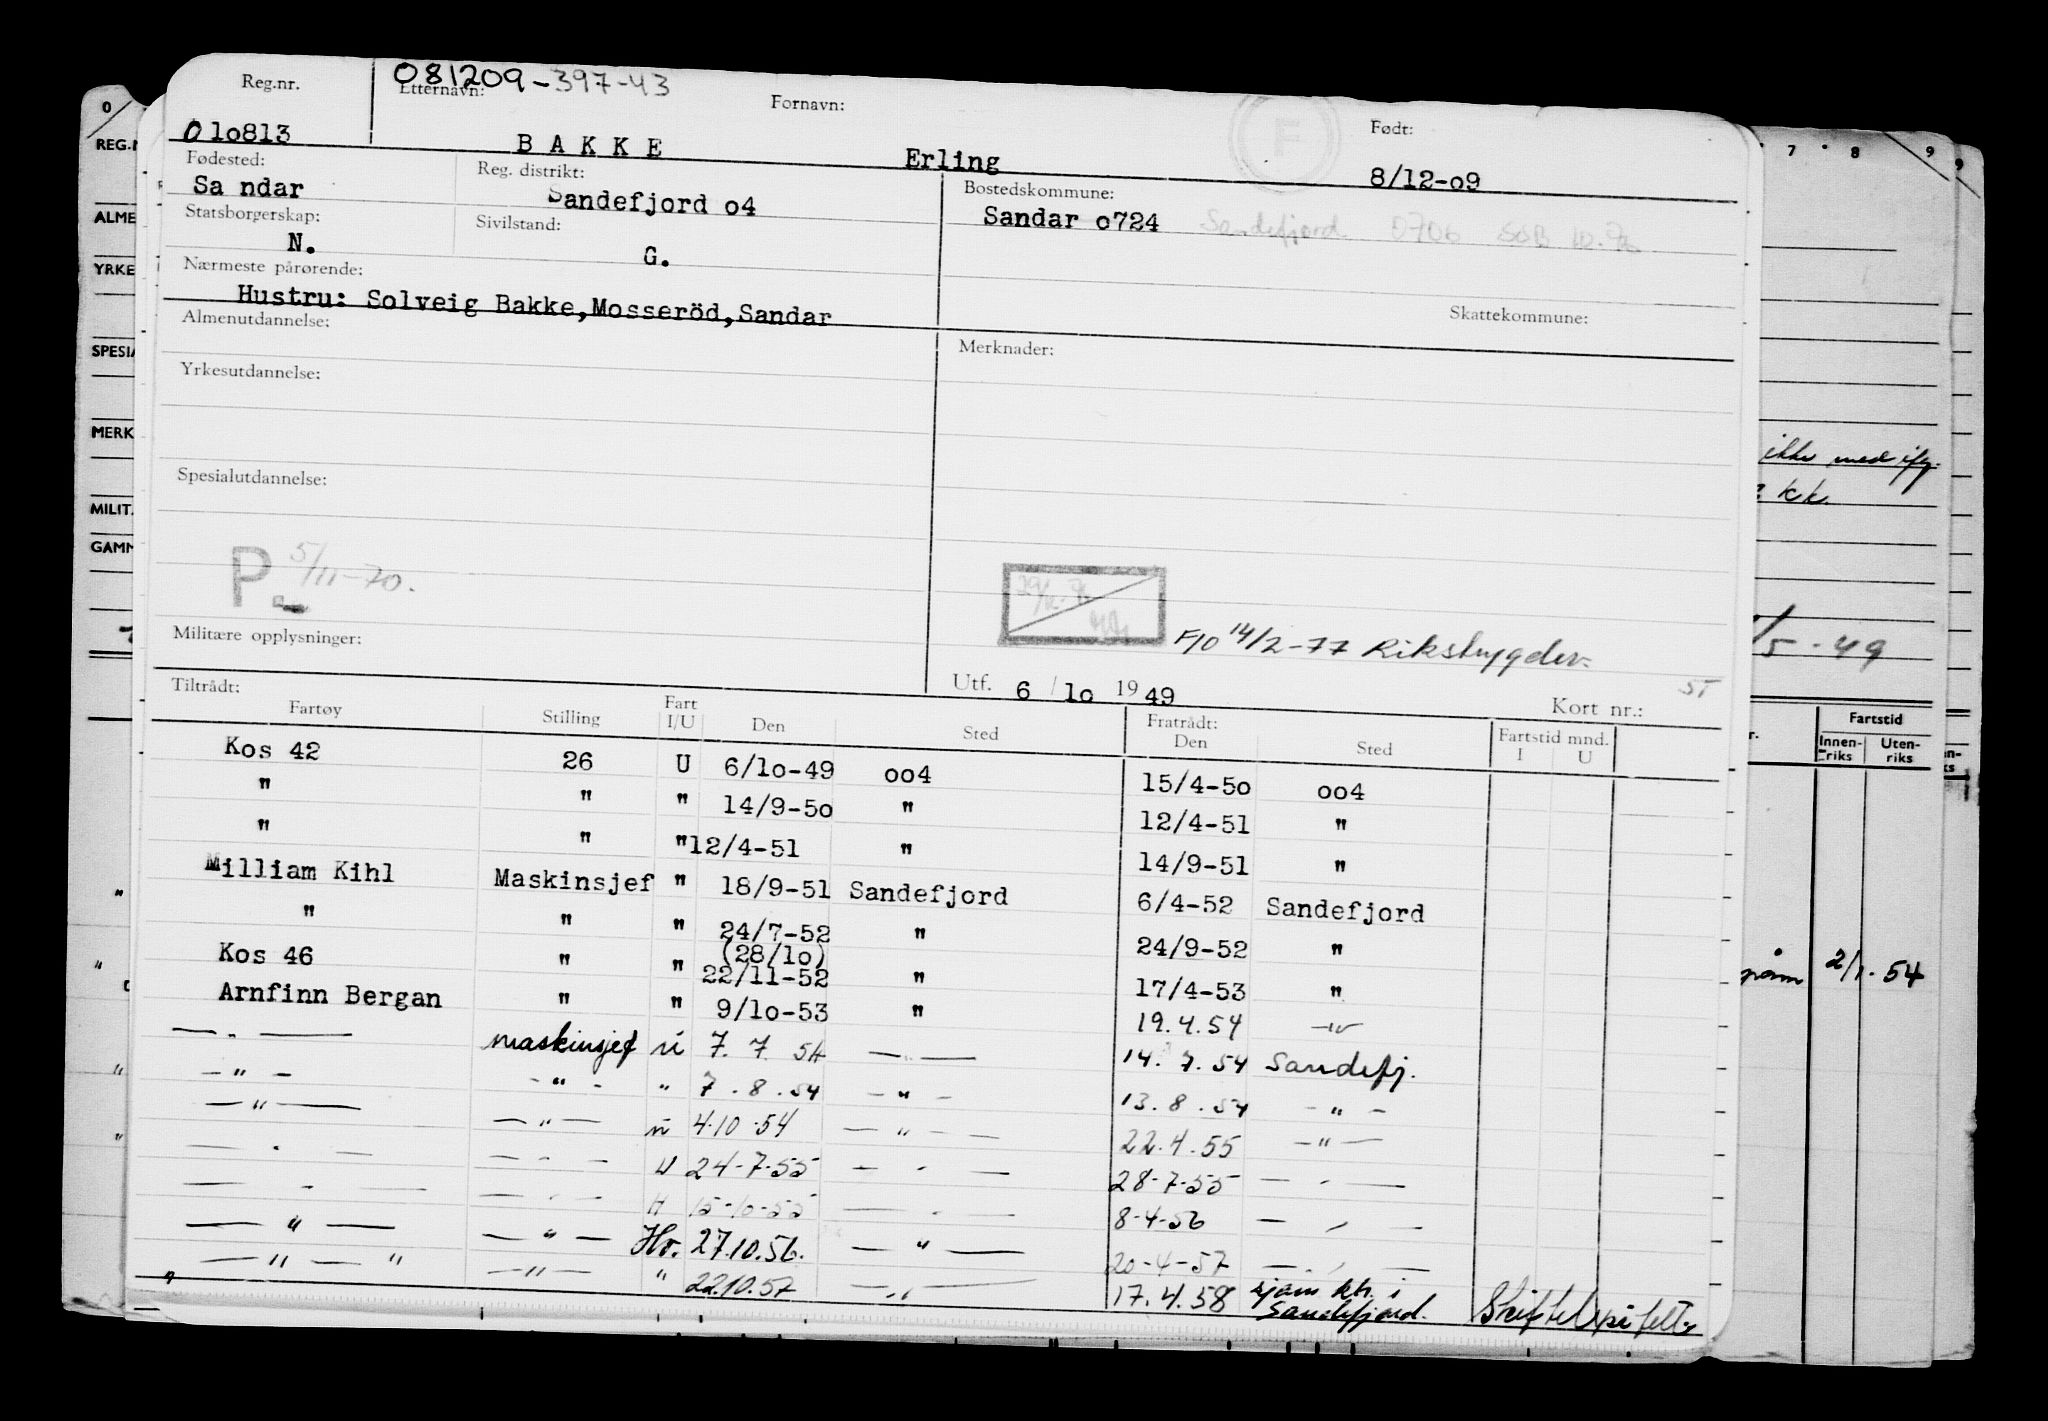 081209-397-43
Reg.nr. Etternavn: Fornavn: Født:
010813 BAKKE Erling 8/12-09
Fødested: Reg. distrikt: Bostedskommune:
Sa ndar Sandefjord o4 Sandar o724 Sandefjord 0706
Statsborgerskap: Sivilstand:
N. G.
Nærmeste pårørende: Skattekommune:
Hustru: Solveig Bakke, Mosseröd, Sandar
Almenutdannelse: Merknader:
Yrkesutdannelse:
Spesialutdannelse:
P 5/11-70.
F/O 14/2-77 Rikstrygdev.
Militære opplysninger:
Utf. 6/lo 1949 Kort nr.:
Tiltrådt: Fratrådt:
Fartøy Stilling Fart I/U Den Sted Den Sted Fartstid mnd. I U
Kos 42 26 U 6/lo-49 oo4 15/4-5o oo4
" " " 14/9-5o " 12/4-51 "
" " " 12/4-51 " 14/9-51 "
William Kihl Maskinsjef " 18/9-51 Sandefjord 6/4-52 Sandefjord
" " " 24/7-52 " 24/9-52 "
(28/lo)
Kos 46 " " 22/11-52 " 17/4-53 "
Arnfinn Bergan " " 9/lo-53 " 19.4.54 -"-
-"- maskinsjef u 7. 7. 54 -"- 14. 7. 54 Sandefj.
-"- -"- " 7. 8. 54 -"- 13. 8. 54 -"-
-"- -"- u 4.10.54 -"- 22.4.55 -"-
-"- -"- U 24-7-55 -"- 28-7-55 -"-
-"- -"- H 15-10-55 -"- 8-4-56 -"-
-"- -"- Hv. 27.10.56. -"- 20-4-57 -"-
-"- " -"- " 22.10.57 -"- 17.4.58 sjøm ktr. i
Sandefjord.
REG.N
ALME
YRKE
SPESIA
MERK
MILIT.
GAMM
7 8 9
ikke med
kk.
/5-49
Fartstid
Innenriks Utenriks
2/1-54